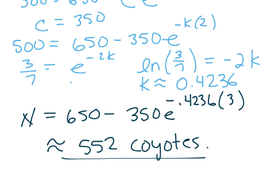 c = 350
500 = 650 - 350e^{-k(2)}
3/7 = e^{-2k}
ln(3/7) = -2k
k ≈ 0.4236
N = 650 - 350e^{-.4236(3)}
≈ 552 coyotes.